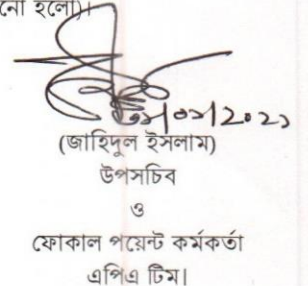 নো হলো)।
২০২১
(জাহিদুল ইসলাম)
উপসচিব
ও
ফোকাল পয়েন্ট কর্মকর্তা
এপিএ টিম।